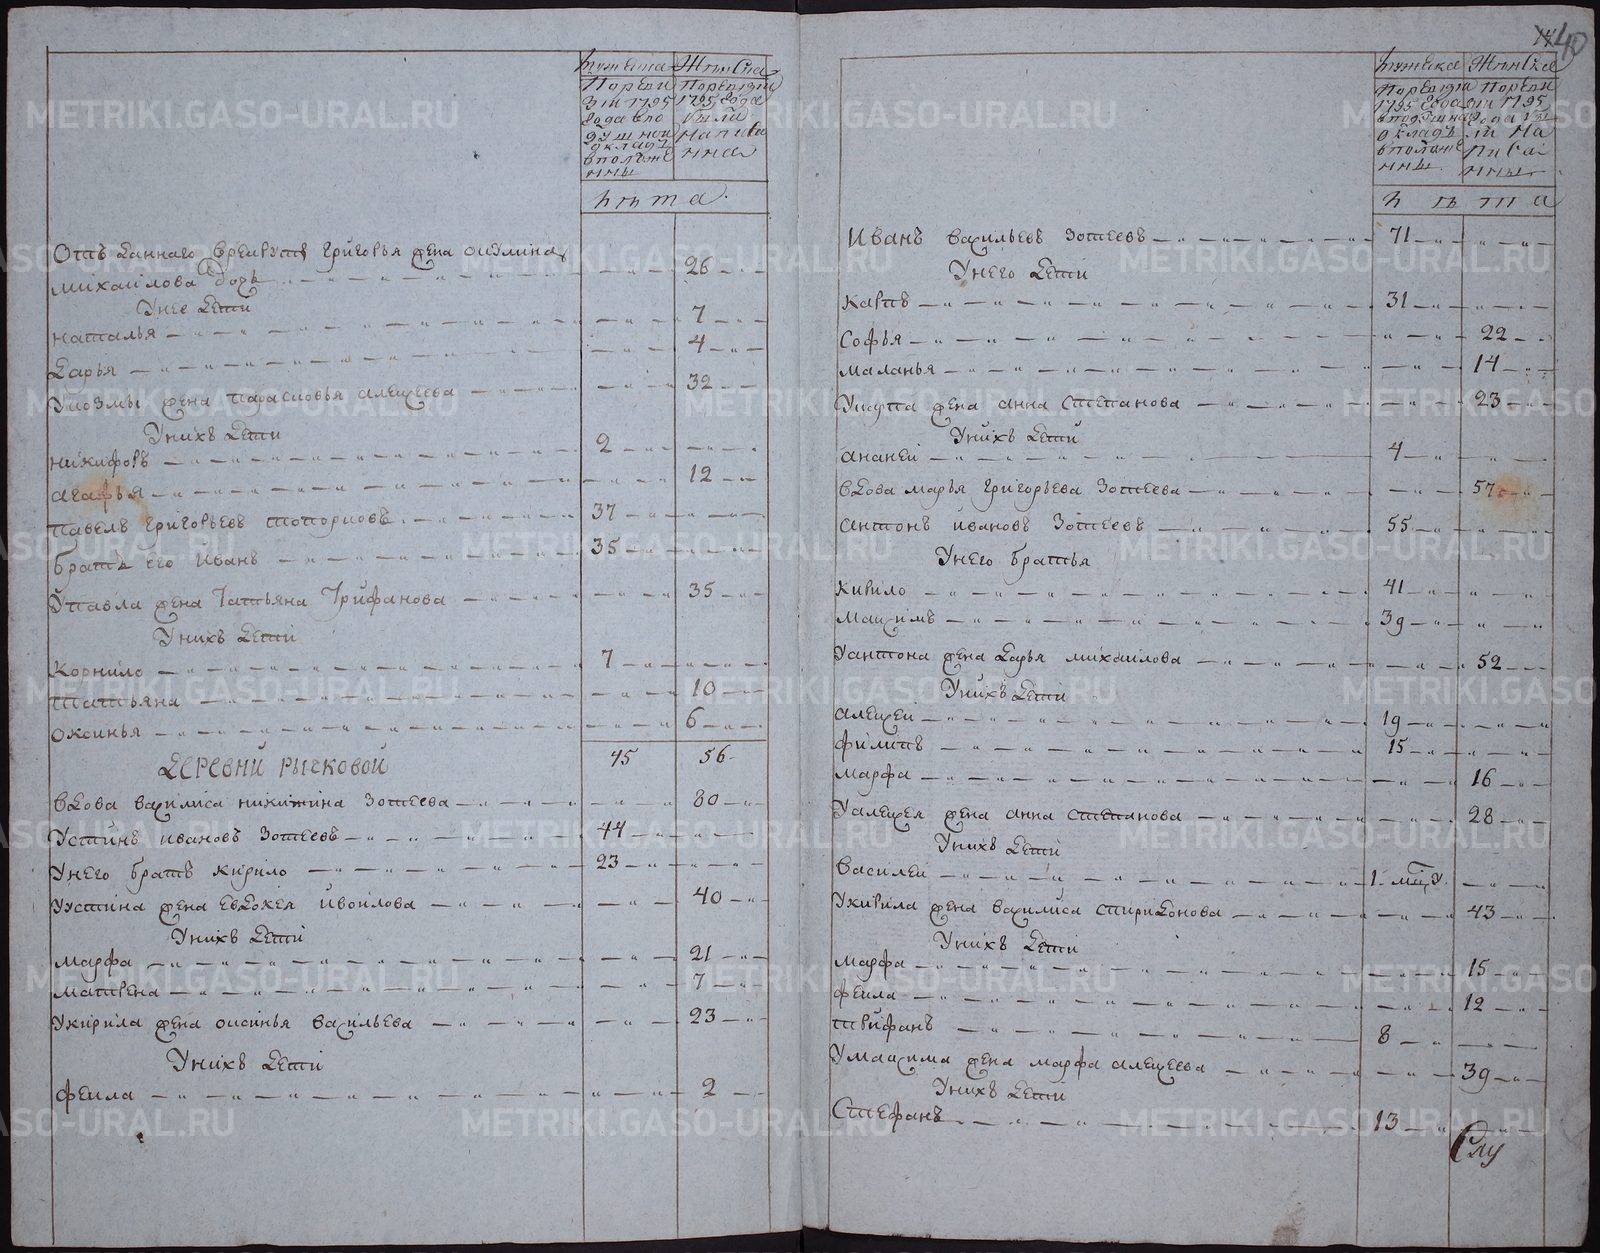 Мужеска Женска
По ревизии 1795 года в подушной окладъ вположенны
По ревизии 1795 года были написанна
лѣта
Отъ даннаго врекруты григорья жена окулина 26
михаилова дочь
Унее дети
наталья 7
дарья 4
Укозмы жена парасковья алексеева 32
Унихъ дети
никифоръ 2
агафья 12
павелъ григорьевъ топорковъ 37
братъ его иванъ 35
Упавла жена татьяна трифанова 35
Унихъ дети
корнило 7
татьяна 10
оксинья 6
45 56
Деревни рычковой
вдова василиса никитина зотеева 80
устинъ ивановъ зотеевъ 44
Унего братъ кирило 23
Уустина жена евдокея ивойлова 40
Унихъ дети
марфа 21
матрена 7
Укирила жена оксинья васильева 23
Унихъ дети
фекла 2
40
Мужеска Женска
По ревизии 1795 года вподушной окладъ вположенны
По ревизии 1795 года были написанны
лѣта
Иванъ васильевъ зотеевъ 71
Унего дети
карпъ 31
Софья 22
маланья 14
Укарпа жена анна степанова 23
Унихъ дети
ананей 4
вдова марья григорьева зотеева 57
антонъ ивановъ зотеевъ 55
Унего братья
кирило 41
максимъ 39
Уантона жена дарья михаилова 52
Унихъ дети
алексей 19
филипъ 15
марфа 16
Уалексея жена анна степанова 28
Унихъ дети
василей 1 мцъ
Укирила жена василиса спиридонова 43
Унихъ дети
марфа 15
фекла 12
трифанъ 8
Умаксима жена марфа алексеева 39
Унихъ дети
Стефанъ 13
METRIKI.GASO-URAL.RU